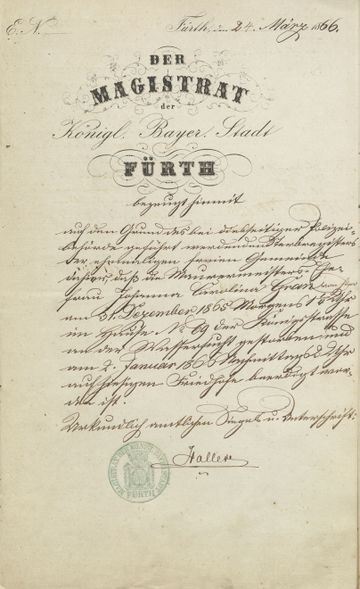 E. N.
Fürth, den 24. März 1866.
DER
MAGISTRAT
der
Königl. Bayer. Stadt
FÜRTH
bezeugt hiemit
auf den Grund des bei diesseitiger Polizei-
behörde geführt werdenden Sterberegisters
der ehemaligen freien Gemeinde
dahier, daß die Maurermeisters-Ehe-
frau Johanna Carolina Gran
am 31. Dezember 1865 Morgens 5 Uhr
im Hause No 69 der Königsstrasse
an der Wassersucht gestorben und
am 2. Januar 1866 Nachmittags 2 Uhr
auf hiesigem Friedhofe beerdigt wor-
den ist.
Urkundlich amtlichen Siegels u. Unterschrift:
Haller
FÜRTH